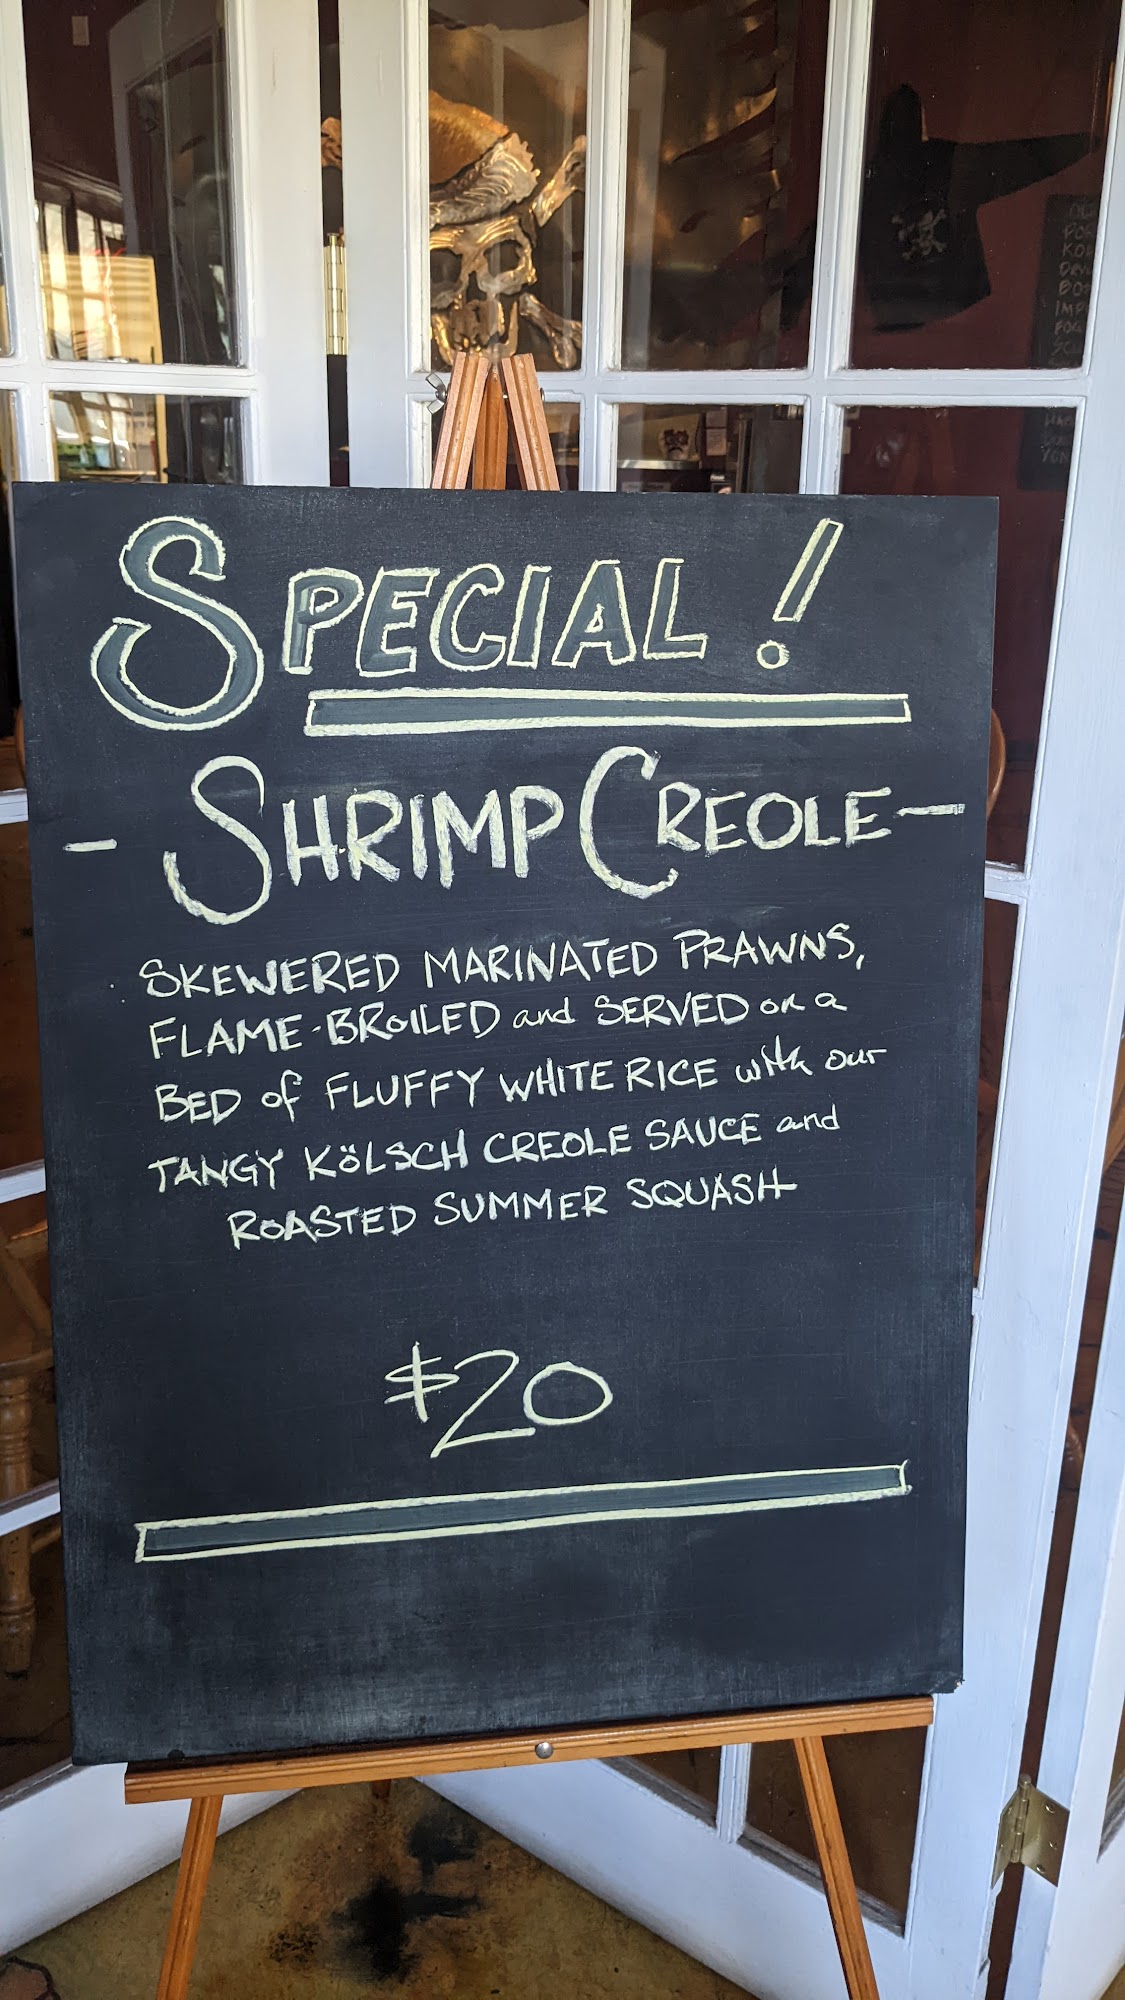 SPECIAL!
- SHRIMP CREOLE -
SKEWERED MARINATED PRAWNS,
FLAME-BROILED and SERVED on a
BED of FLUFFY WHITE RICE with our
TANGY KÖLSCH CREOLE SAUCE and
ROASTED SUMMER SQUASH
$20